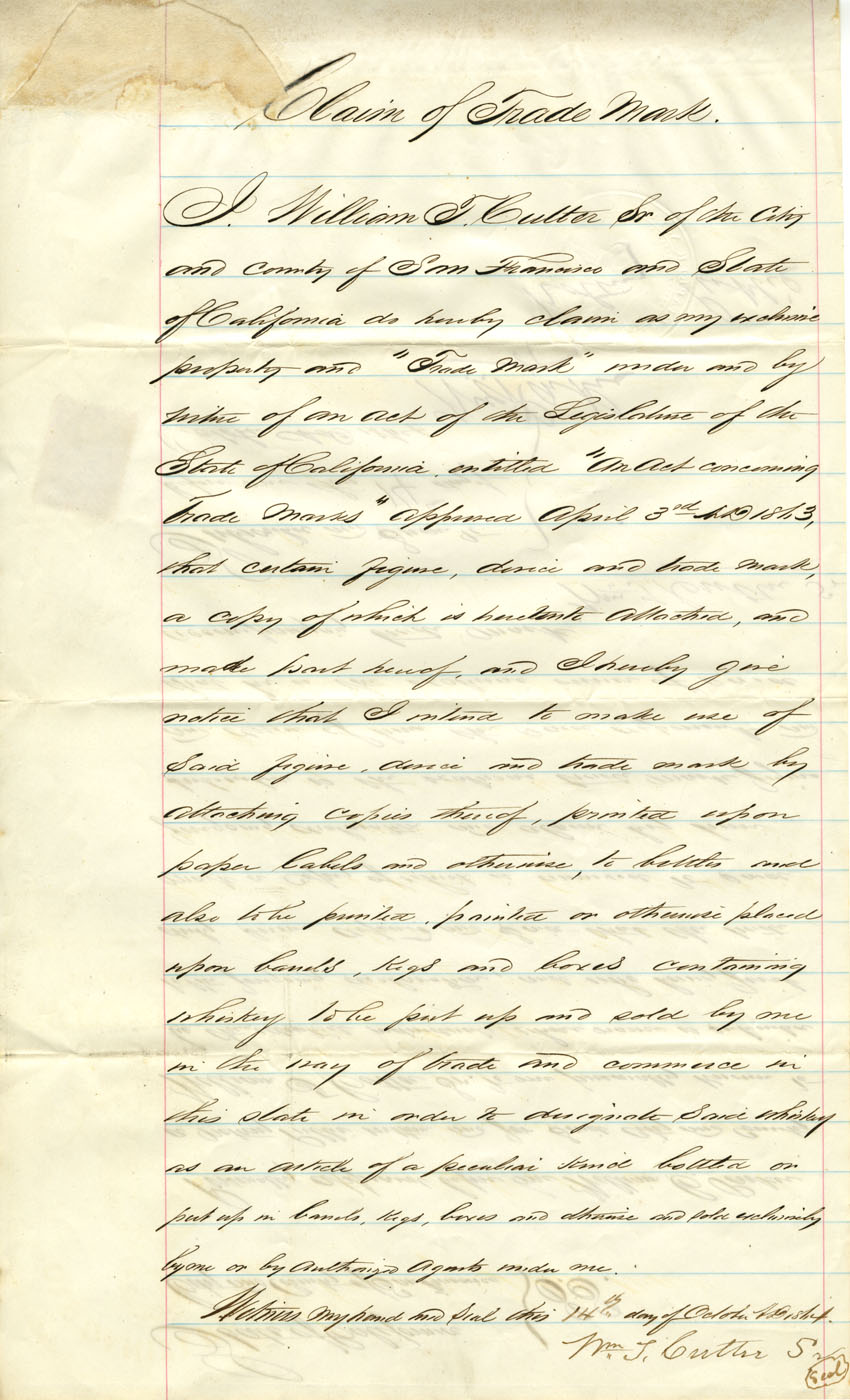 Claim of Trade Mark.
I. William T. Cutter Sr of the City
and county of San Francisco and State
of California do hereby claim as my exclusive
property and "Trade Mark" under and by
virtue of an act of the Legislature of the
State of California entitled "An Act concerning
Trade Marks" approved April 3rd A.D. 1863,
that certain figure, device and trade mark,
a copy of which is hereunto attached, and
made part hereof, and I hereby give
notice that I intend to make use of
said figure, device and trade mark by
attaching copies thereof, printed upon
paper labels and otherwise, to bottles and
also to be printed, painted or otherwise placed
upon barrels, kegs and boxes containing
whiskey to be put up and sold by me
in the way of trade and commerce in
this state in order to designate said whiskey
as an article of a peculiar kind bottled or
put up in barrels, kegs, boxes and otherwise and sold exclusively
by me or by authorized agents under me.
Witness my hand and seal this 14th day of October A.D.
Wm T. Cutter Sr
Seal